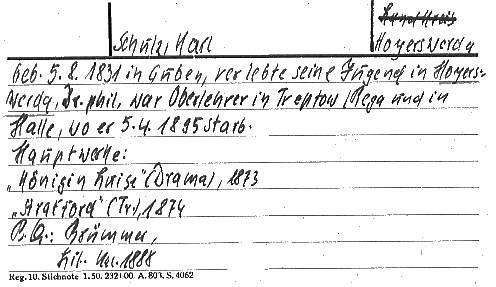 Landkreis
Schulz, Karl Hoyerswerda
Geb. 5. 8. 1831 in Guben, verlebte seine Jugend in Hoyers-
werda, Dr. phil, war Oberlehrer in Treptow/Rega und in
Halle, wo er 5.4. 1895 starb.
Hauptwerke:
„Königin Luise" (Drama), 1873
„Stratford" (Tr.), 1874
P.Q.: Brümmer,
Lit. Lex. 1888
Reg. 10. Stichnote 1. 50. 232100. A. 803. S. 4062